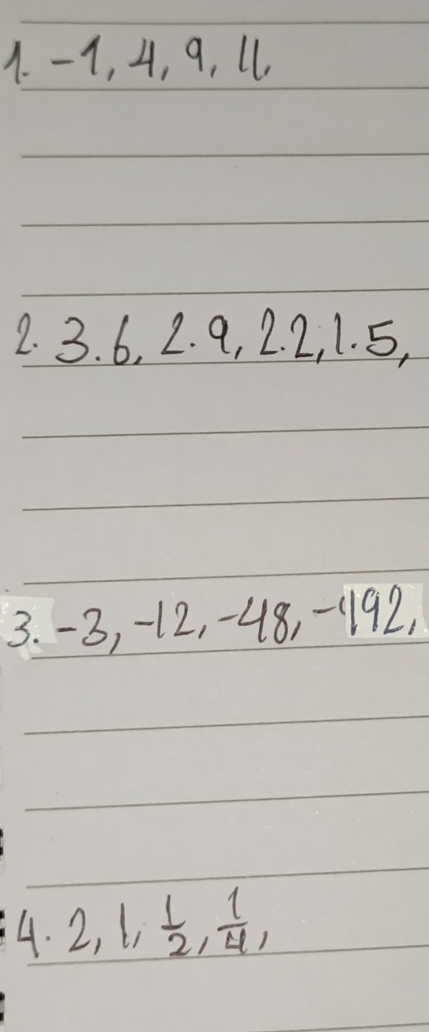 1. -1, 4, 9, 11,
2. 3.6, 2.9, 2.2, 1.5,
3. -3, -12, -48, -192,
4. 2, 1, 1/2, 1/4,